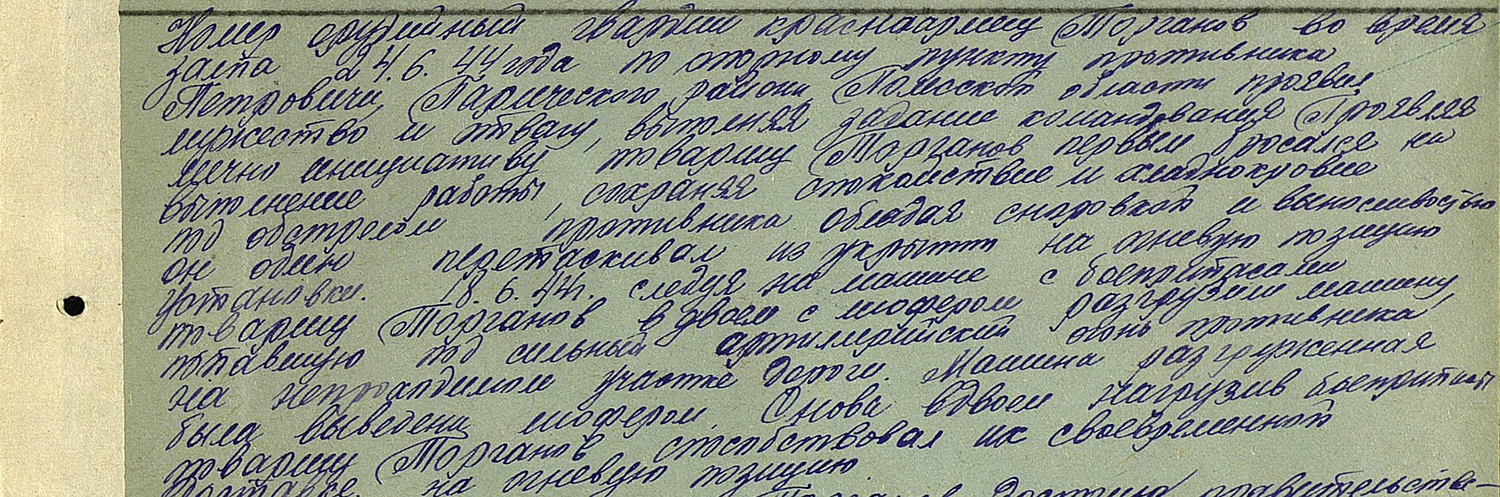 Номер орудийный гвардии красноармеец Торганов во время
залпа 24.6.44 года по опорному пункту противника
Петровичи, Паричского района Полесской области проявил
мужество и отвагу, выполняя задание командования. Проявляя
лично инициативу, товарищ Торганов первым бросался на
выполнение работы, сохраняя спокойствие и хладнокровие
под обстрелом противника обладая сноровкой и выносливостью
он один перетаскивал из укрытия на огневую позицию
установки. 18.6.44г. следуя на машине с боеприпасами
товарищ Торганов вдвоем с шофером разгрузили машину
попавшую под сильный артиллерийский огонь противника
на непроходимом участке дороги. Машина разгруженная
была выведена шофером. Снова вдвоем нагрузив боеприпасы
товарищ Торганов способствовал их своевременной
доставке на огневую позицию.
Торганов достоин правительства-